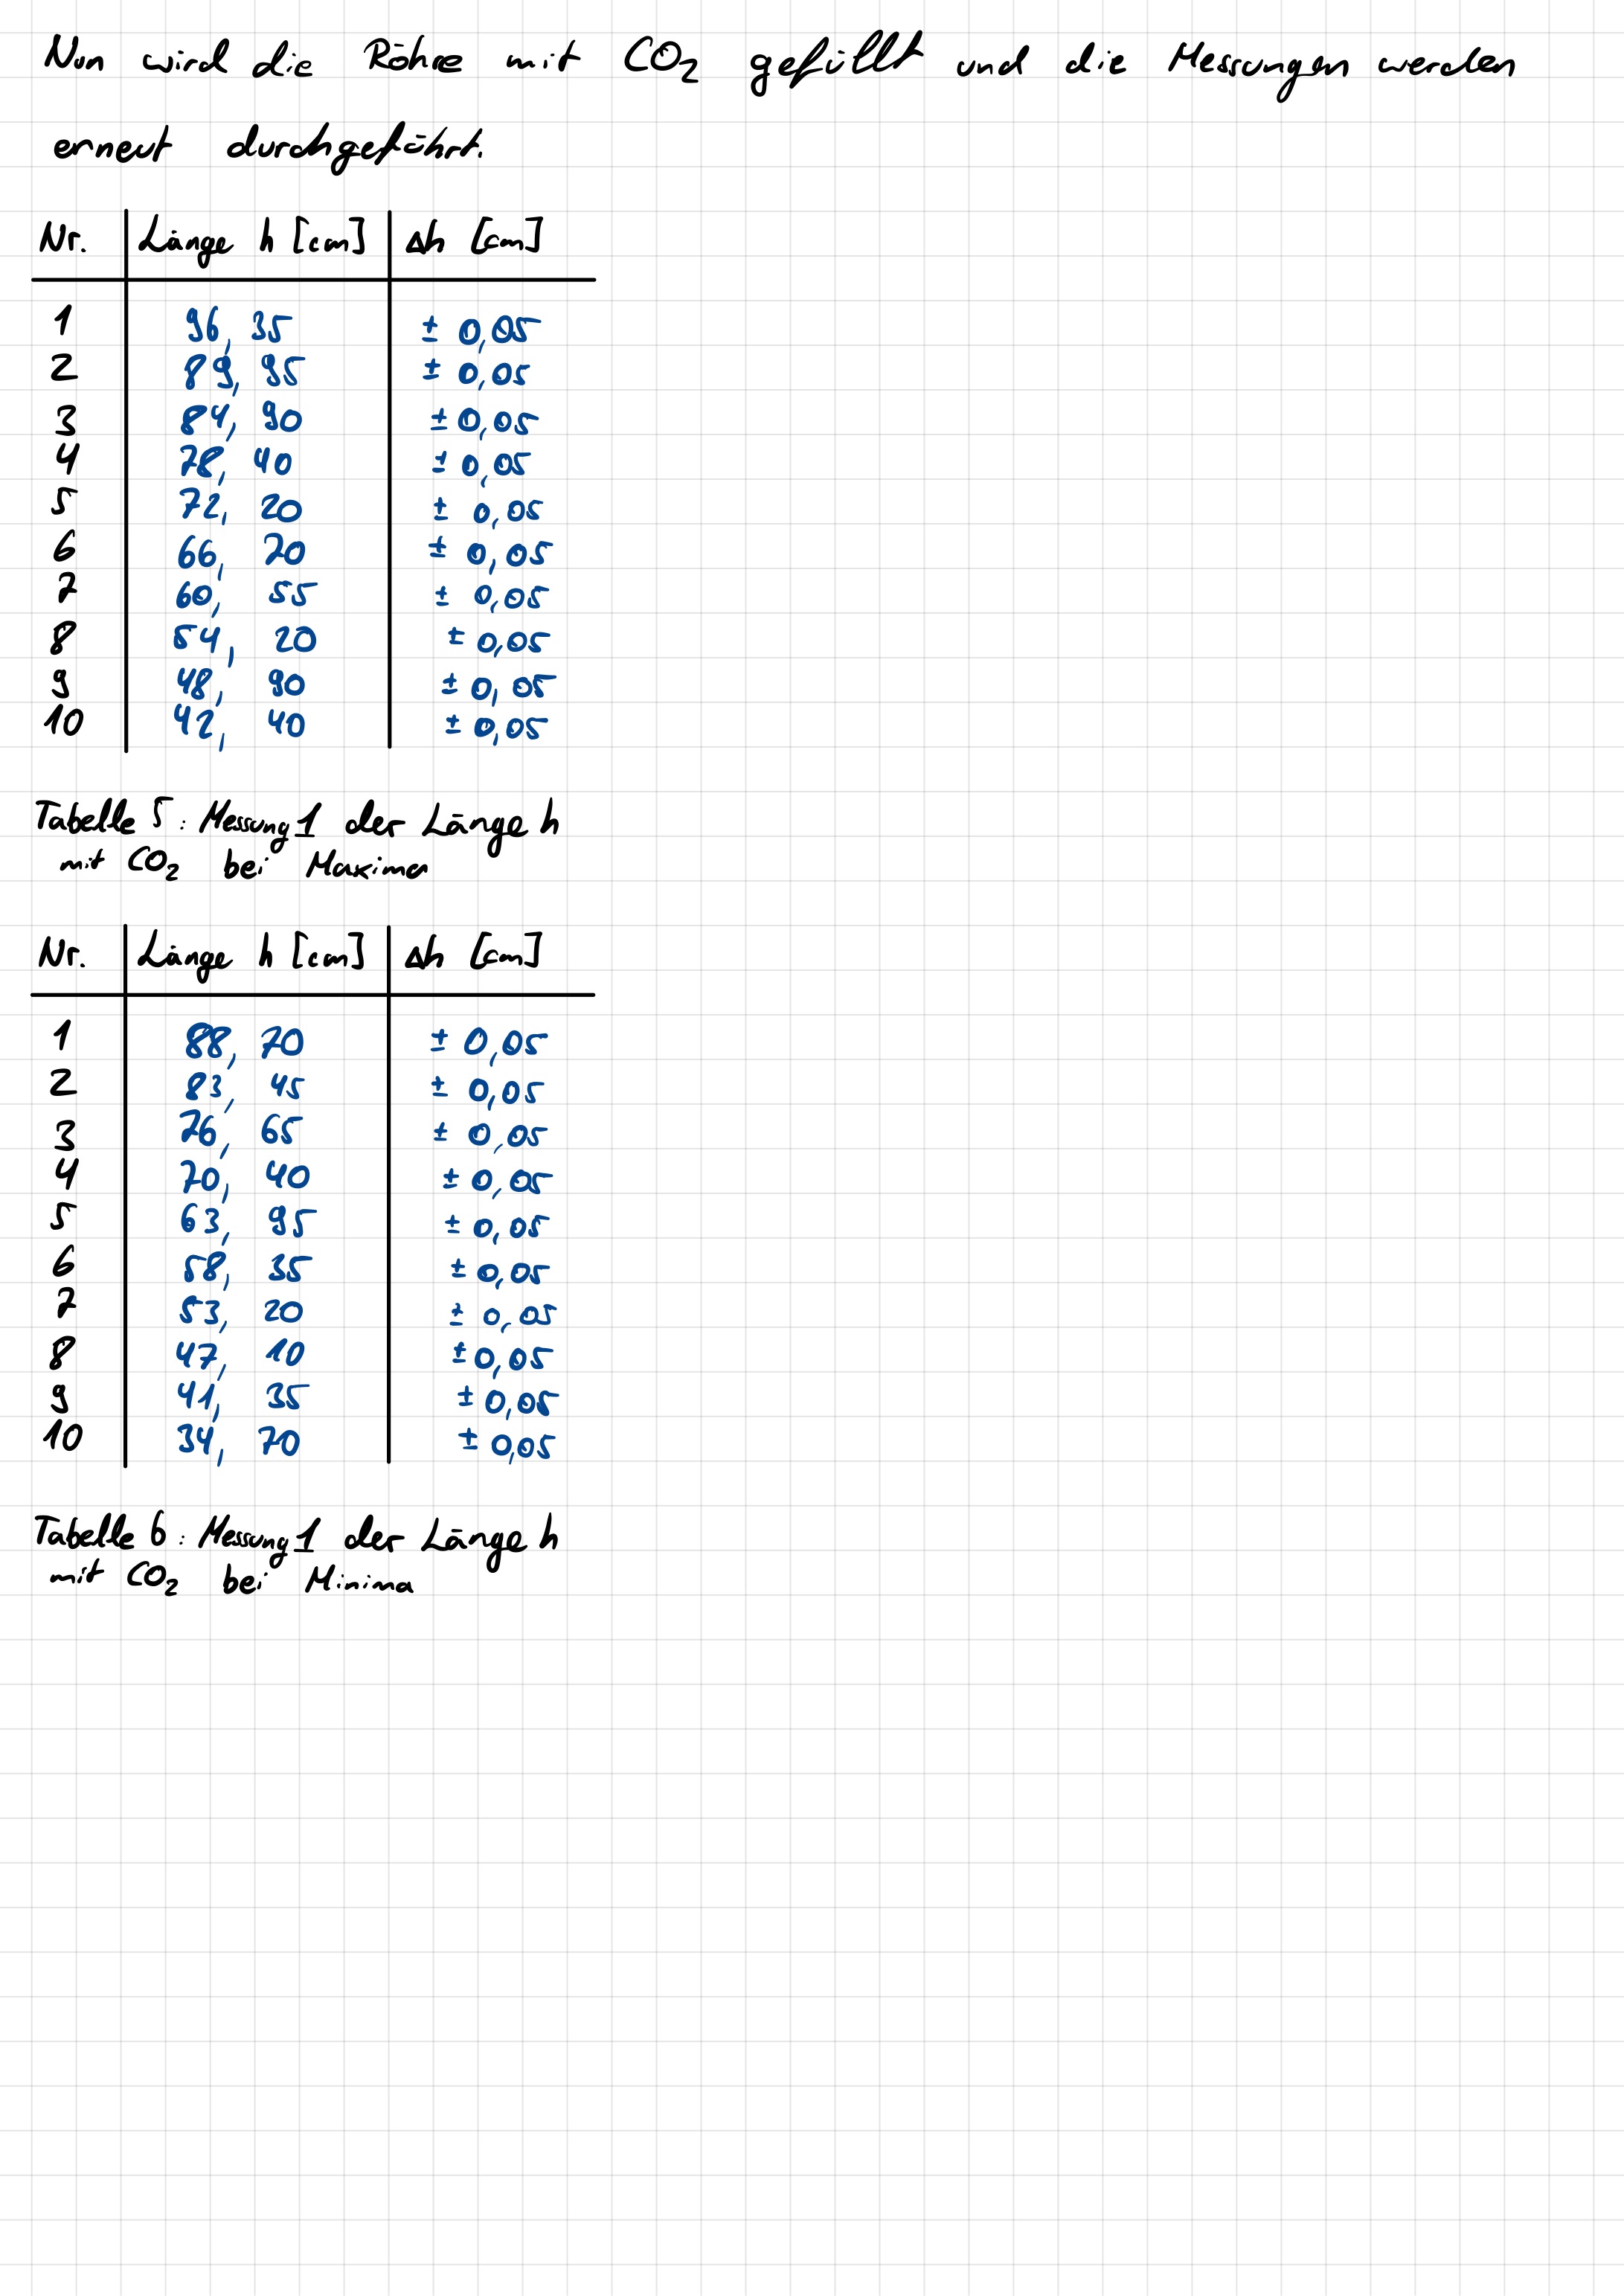 Nun wird die Röhre mit CO₂ gefüllt und die Messungen werden
erneut durchgeführt.
Nr. Länge h [cm] Δh [cm]
1 96,35 ± 0,05
2 89,95 ± 0,05
3 84,90 ± 0,05
4 78,40 ± 0,05
5 72,20 ± 0,05
6 66,20 ± 0,05
7 60,55 ± 0,05
8 54,20 ± 0,05
9 48,90 ± 0,05
10 42,40 ± 0,05
Tabelle 5: Messung 1 der Länge h
mit CO₂ bei Maxima
Nr. Länge h [cm] Δh [cm]
1 88,70 ± 0,05
2 83,45 ± 0,05
3 76,65 ± 0,05
4 70,40 ± 0,05
5 63,95 ± 0,05
6 58,35 ± 0,05
7 53,20 ± 0,05
8 47,10 ± 0,05
9 41,35 ± 0,05
10 34,70 ± 0,05
Tabelle 6: Messung 1 der Länge h
mit CO₂ bei Minima